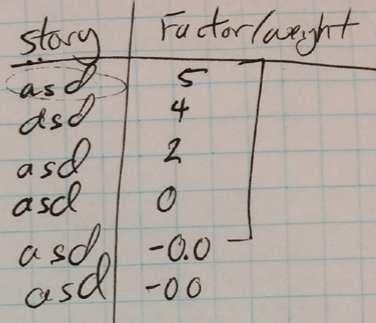 story Factor/weight
asd 5
asd 4
asd 2
asd 0
asd -0.0
asd -00